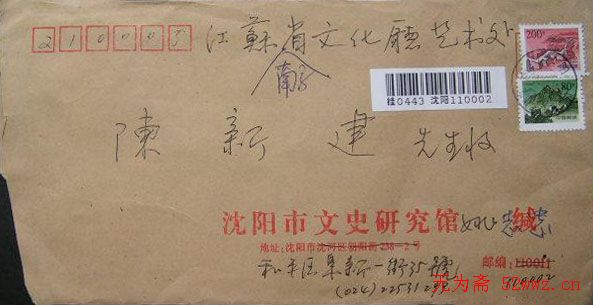 210005 江蘇省文化廳艺术处
南京
200分
80分
桂0443 沈阳110002
陳新建 先生收
沈阳市文史研究馆 姚志忠 缄
地址:沈阳市沈河区朝阳街238—2号
和平区集新一街35號 邮编:110011
(024)2253 110002
无为斋 52wwz.cn